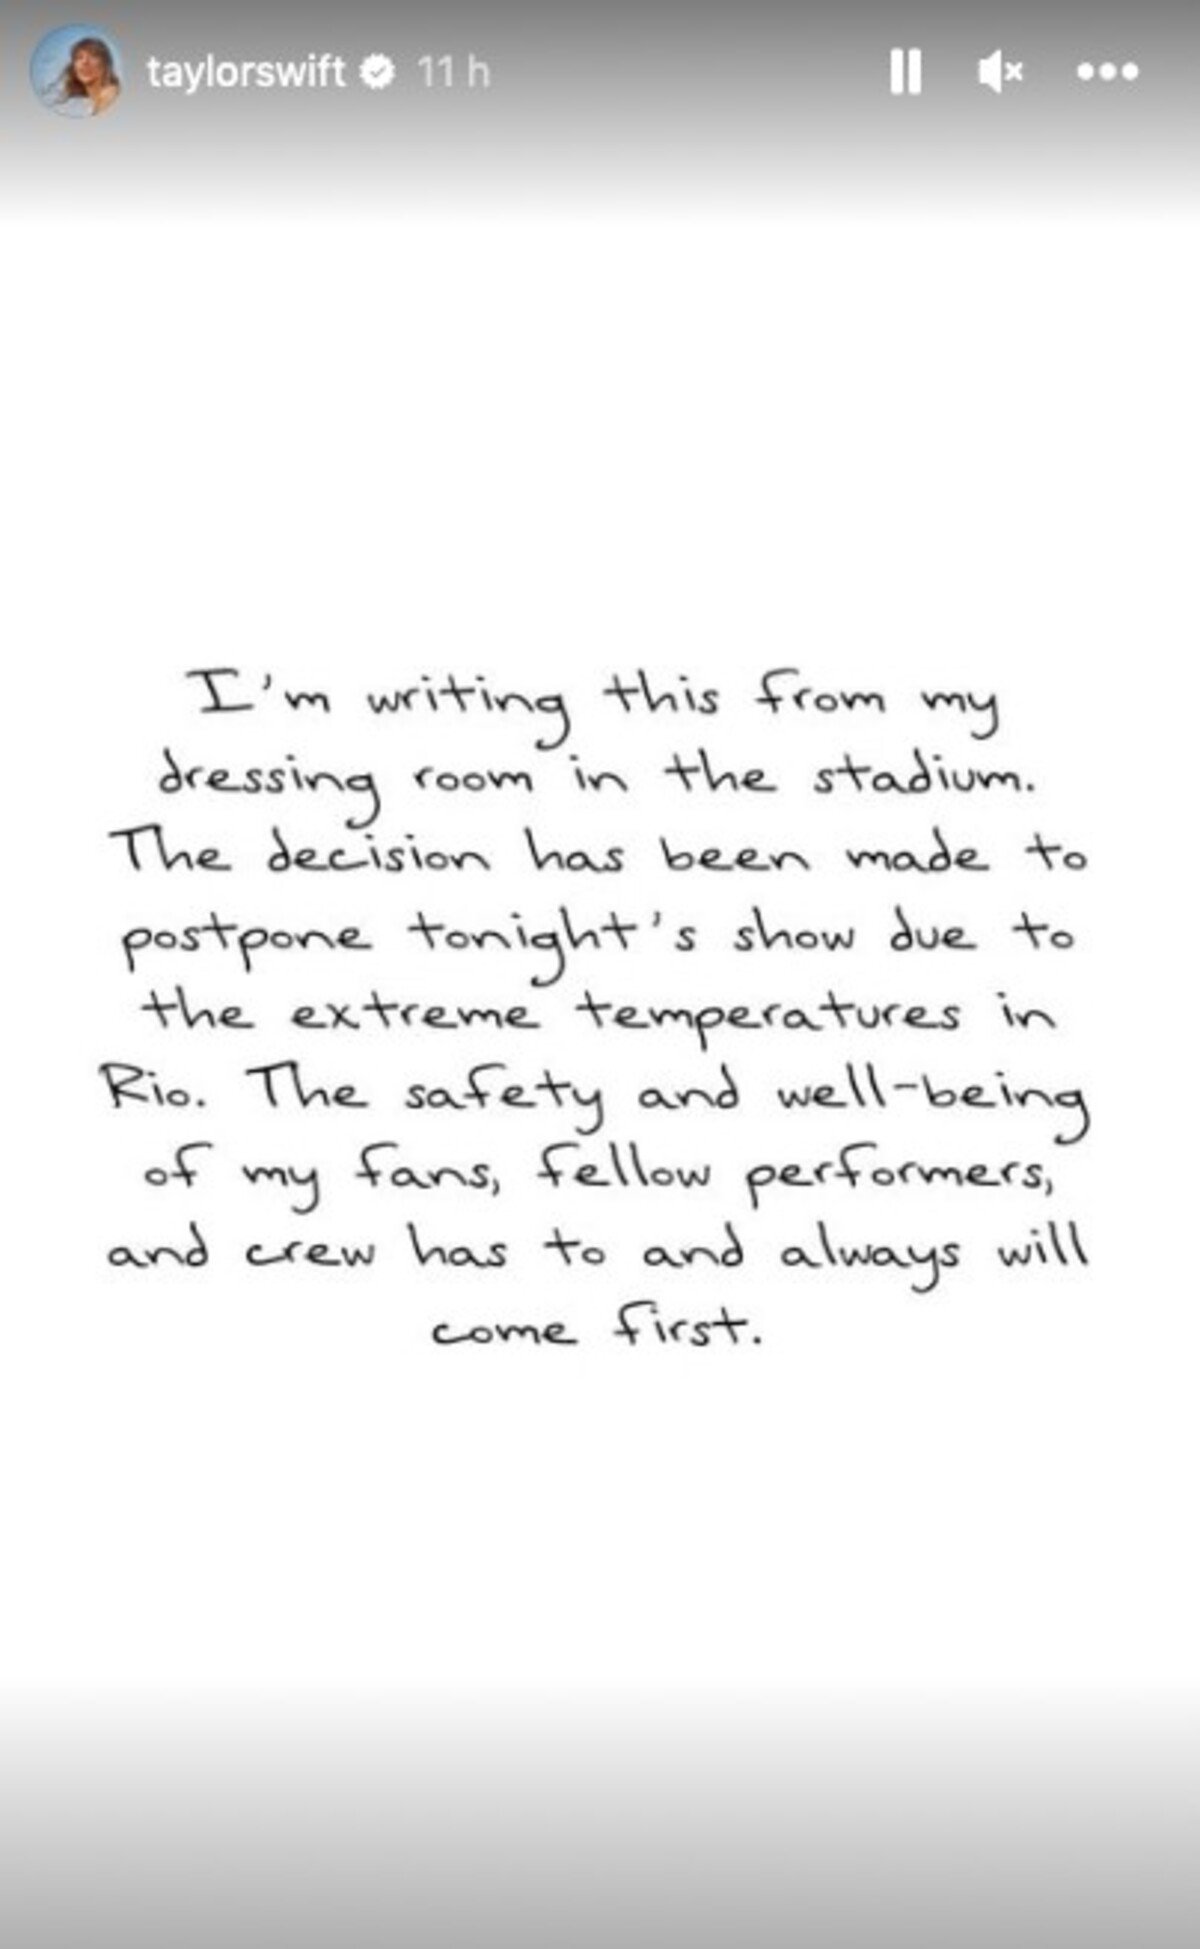 taylorswift 11 h
I'm writing this from my
dressing room in the stadium.
The decision has been made to
postpone tonight's show due to
the extreme temperatures in
Rio. The safety and well-being
of my fans, fellow performers,
and crew has to and always will
come first.